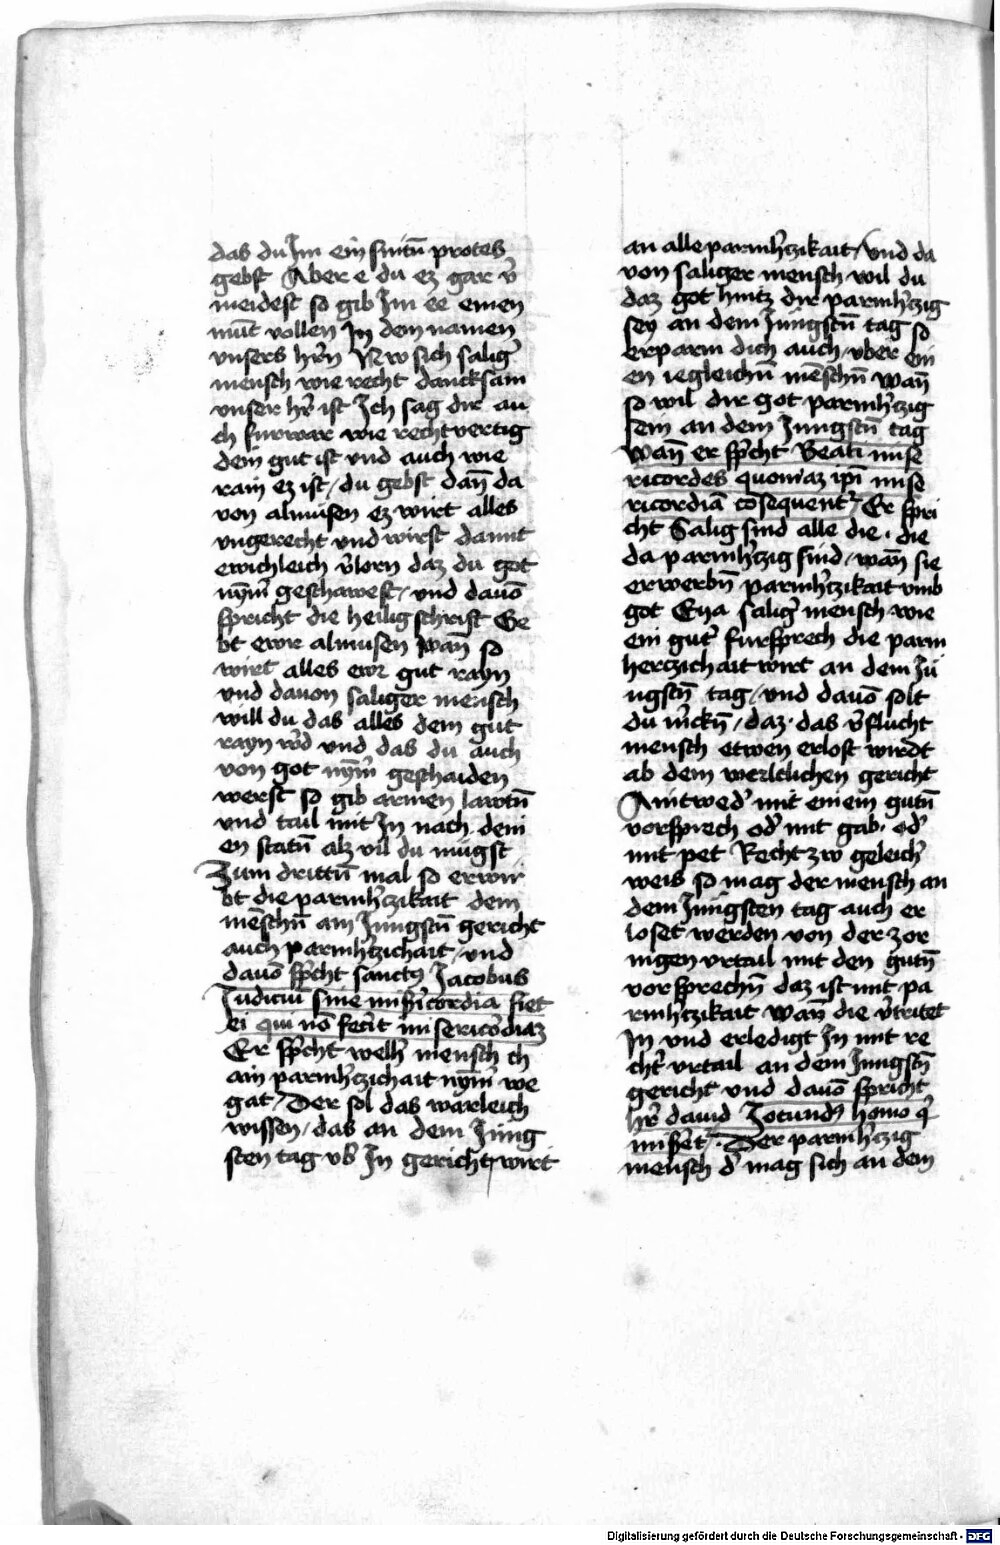 das du Im ein snitñ protes
gebst Aber e du ez gar v̄
meidest so gib Im ee einen
mut vollen In dem namen
unsers hr̄n Nw sich salig̉
mensch wie recht dancksam
unser hr̄ ist Ich sag dir au
ch furwar wie recht vertig
dein gut ist und auch wie
rain ez ist / du gebst dañ da
von almusen ez wirt alles
ungerecht und wirst damit
ewichleich v̉lorn daz du got
nym̄̉ geschawest / und dauō
spricht die heilig schrift Ge
bt ewr almusen wañ so
wirt alles ewr gut rayn
und dauon saliger mensch
will du das alles dem gut
rayn w̉d und das du auch
von got nym̄̉ geschaiden
werst so gib armen lawtñ
und tail mit In nach dein
en statñ alz vil du mugst
Zum drittñ mal so erwir
bt die parmh̉czikait dem
mēschñ am Iungstñ gericht
auch parmh̉czichait / und
dauō sp̄cht sanctꝰ Jacobus
Judiciū sine mis̄icordia fiet
ei qui nō fec̉it misericordiaz
Er sp̄cht welh̉ mensch ch
ain parmh̉czichait nym̄̉ we
gat / Der sol das warleich
wissen / das an dem Iung
sten tag vb̉ In gericht wirt
an alle parmh̉czikait / Und da
von saliger mensch wil du
daz got hintz dir parmh̉czig
sey an dem Iungstñ tag so
erparm dich auch / vber ein
en iegleichñ mēschñ wañ
so wil dir got parmh̉czig
sein an dem Iungstñ tag
Wañ er sp̄cht Beati mise
ricordes quoniaz ip̄i mise
ricordiā cōsequent̉ / Er spri
cht Salig sind alle die · die
da parmh̉czig sind / wañ sie
erwerbñ parmh̉czikait umb
got Eya salig̉ mensch wie
ein gut̉ fursprech die parm
herczichait wirt an dem Iu
ngstñ tag / und dauō solt
du m̉ckñ / daz · das v̉flucht
mensch etwen erlost wirdt
ab dem werltlichen gericht
Aintwed̉ mit einem gutñ
vorsprech od̉ mit gab · od̉
mit pet Recht zw geleich̉
weis so mag der mensch an
dem Iungsten tag auch er
loset werden von der zor
nigen urtail mit den gutñ
vorsprechñ daz ist mit pa
rmh̉czikait wañ die v̉tritet
In und erledigt In mit re
cht̉ urtail an dem Iungstñ
gericht und dauō spricht
hr̄ dauid Jocundꝰ homo q̄
mis̄et̉ · Der parmh̉czig
mensch d̉ mag sich an dem
Digitalisierung gefördert durch die Deutsche Forschungsgemeinschaft - DFG